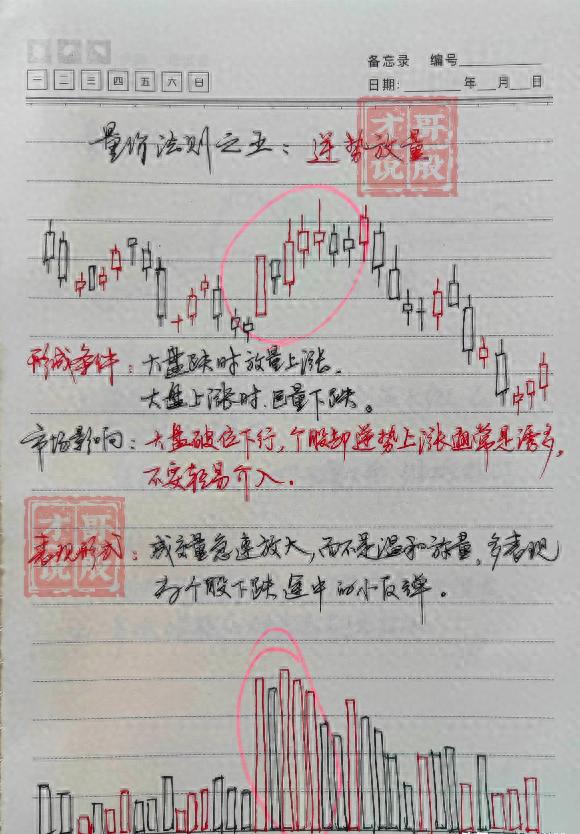 备忘录 编号
一 二 三 四 五 六 日
日期: 年 月 日
才哥说股
量价法则之五：逆势放量
形成条件：大盘跌时放量上涨，
大盘上涨时，巨量下跌。
市场影响：大盘破位下行，个股却逆势上涨通常是诱多，
不要轻易介入.
才哥说股
表现形式：成交量急速放大，而不是温和放量，多表现
为个股下跌途中的小反弹。